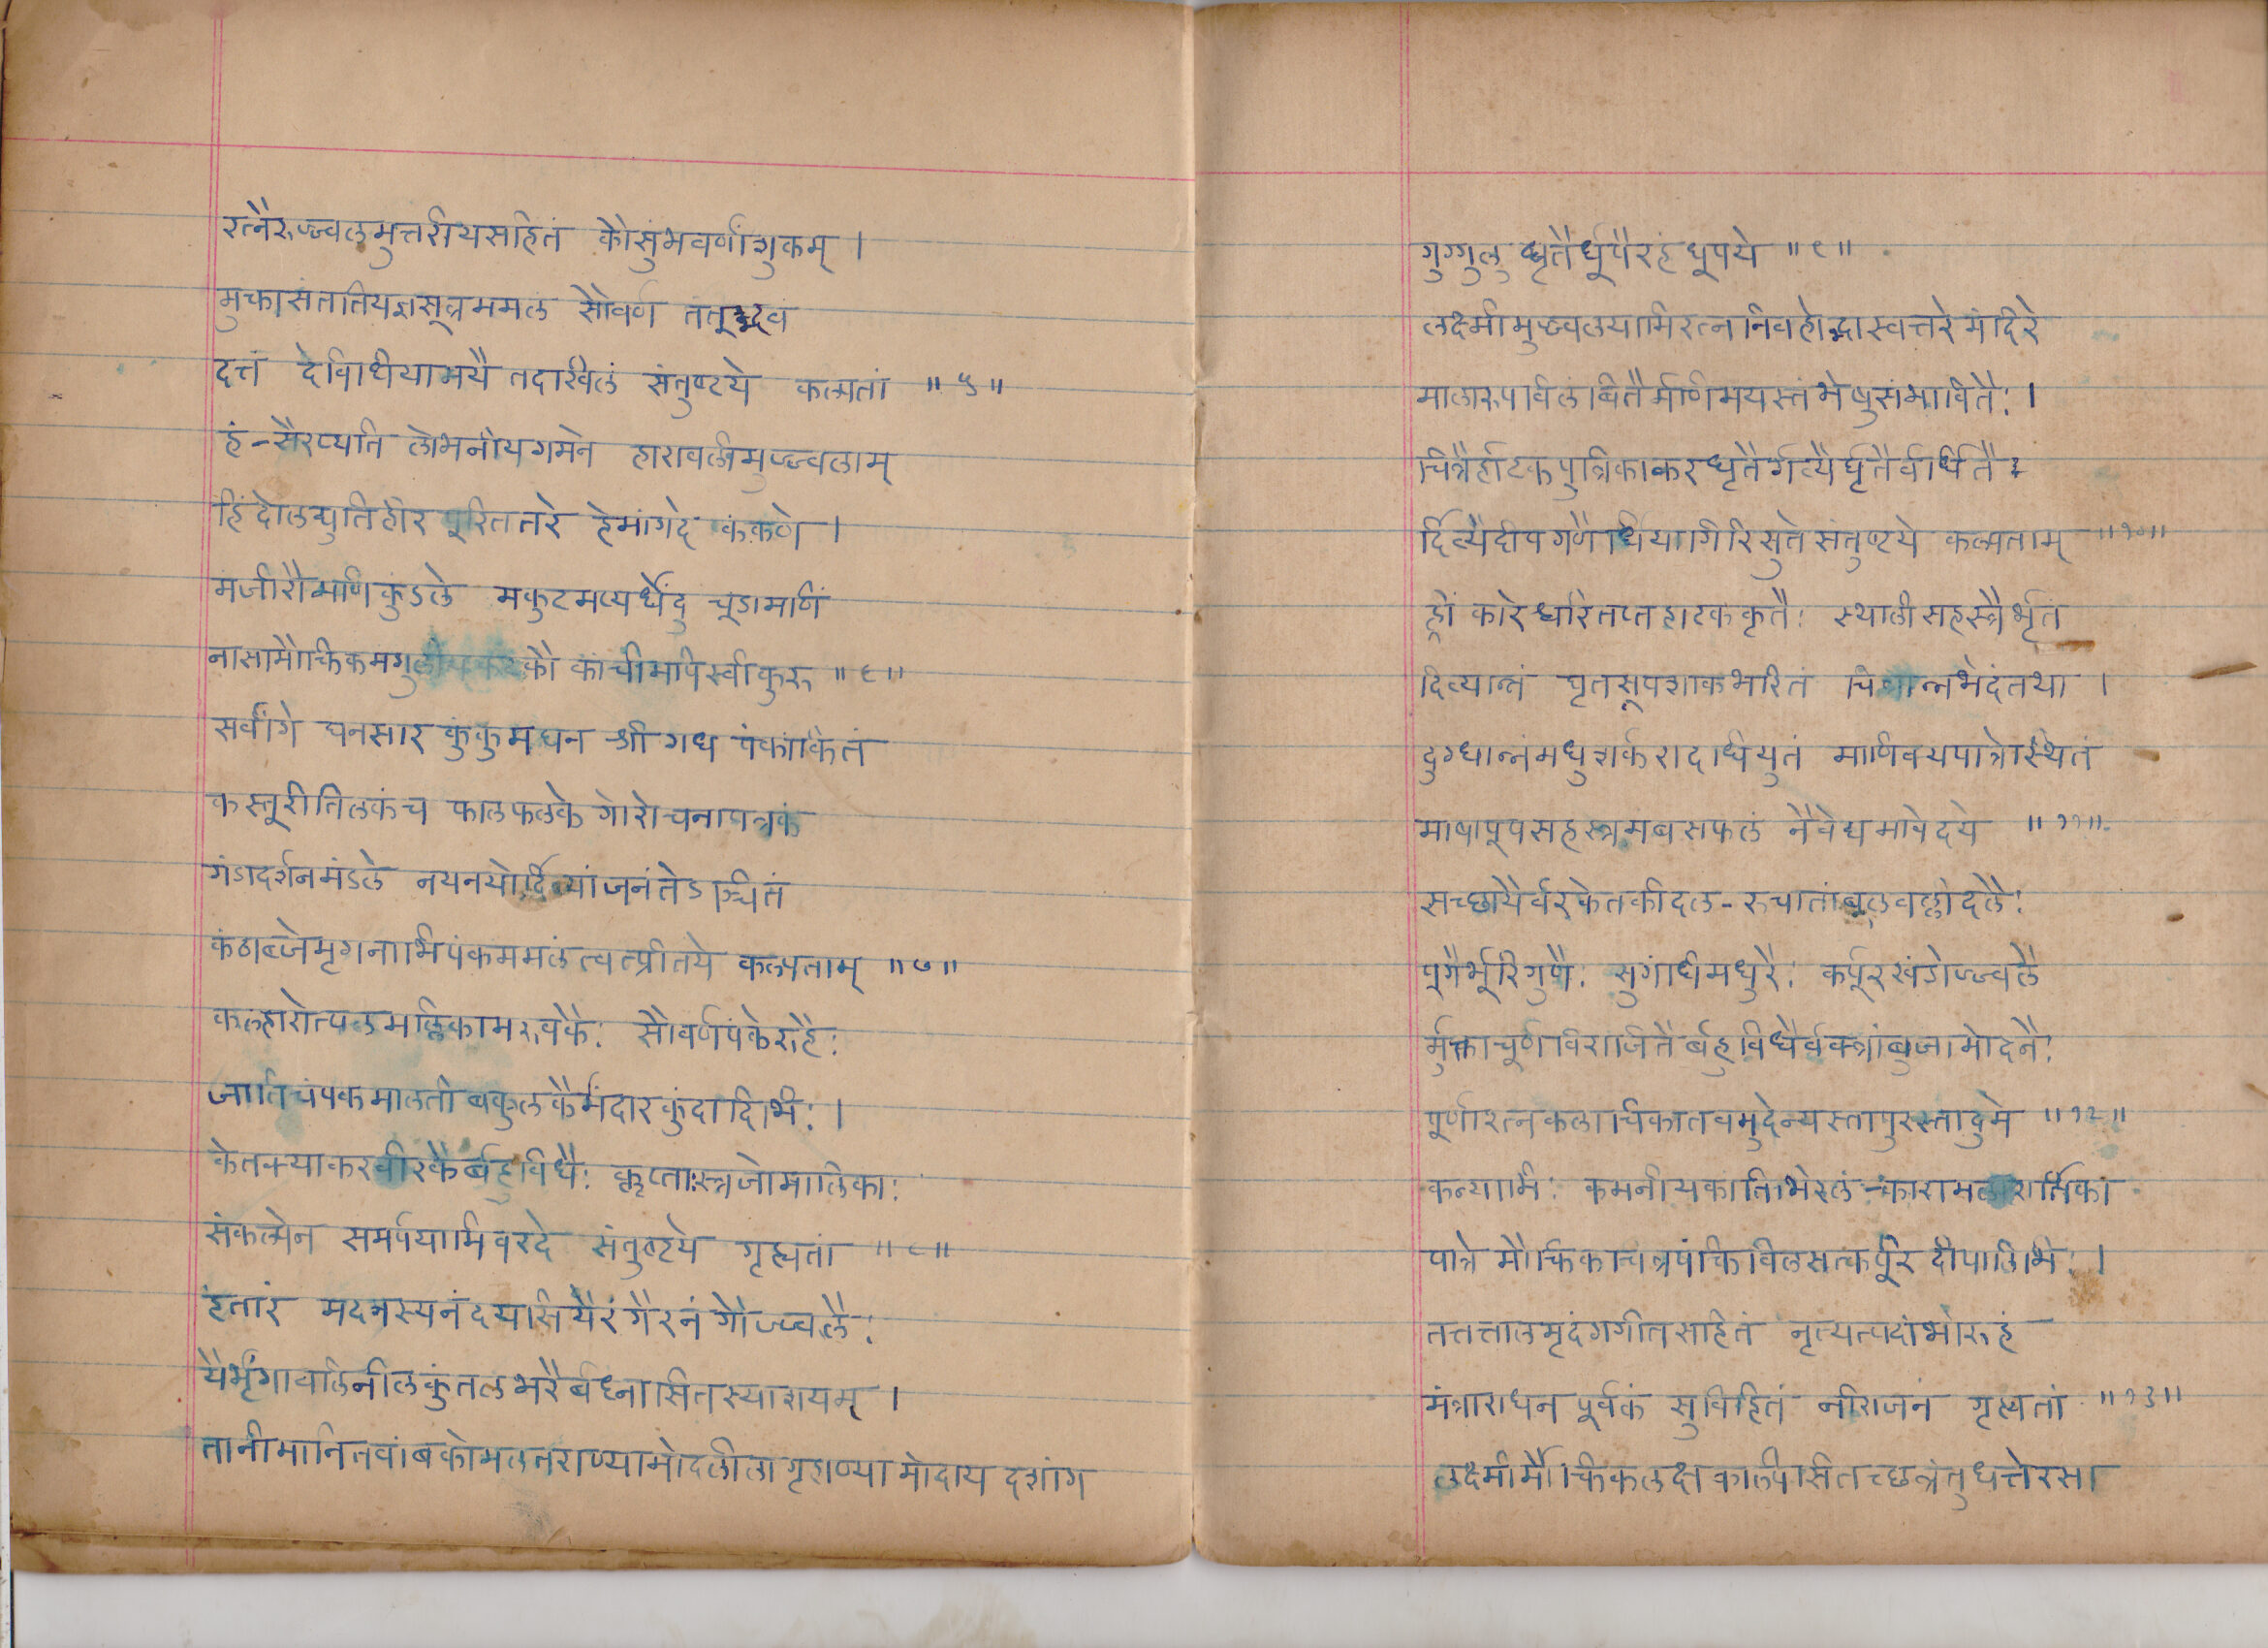 रत्नैरुज्ज्वलमुत्तरीयसहितं कौसुंभवर्णांशुकम् ।
मुक्तासंततियज्ञसूत्रममलं सौवर्ण तंतूद्भवं
दत्तं देविधियामयै तदखिलं संतुष्टये कल्पतां ॥ ५ ॥
हं-सैरप्यति लोभनीयगमने हारावलीमुज्ज्वलाम्
हिंदोलद्युतिहीर पूरिततरे हेमांगदे कंकणे ।
मंजीरौमणि कुंडले मकुटमप्यर्धेंदु चूडामणिं
नासामौक्तिकमंगुलीयकटकौ कांचीमपिस्वीकुरु ॥ ६ ॥
सर्वांगे घनसार कुंकुमघन श्री गंध पंकांकितं
कस्तूरीतिलकंच फालफलके गोरोचनापत्रकं
गंडादर्शनमंडले नयनयोर्दिव्यांजनंतेऽञ्चितं
कंठाब्जेमृगनाभिपंकममलं त्वत्प्रीतये कल्पताम् ॥ ७ ॥
कल्हारोत्पलमल्लिकामरुवकैः सौवर्णपंकेरुहैः
जातिचंपकमालती बकुलकैर्मंदारकुंदादिभिः ।
केतक्याकरवीरकैर्बहुविधैः क्लृप्ताःस्रजोमालिकाः
संकल्पेन समर्पयामिवरदे संतुष्टये गृह्यतां ॥ ८ ॥
हंतारं मदनस्यनंदयसियैरंगैरनंगोज्ज्वलैः
यैर्भृंगावलिनीलकुंतलभरैर्बध्नासितस्याशयम् ।
तानीमानितवांबकोमलतराण्यामोदलीलागृहाण्यामोदाय दशांग
गुग्गुलु घृतैर्धूपैरहंधूपये ॥ ९ ॥
लक्ष्मीमुज्वलयामिरत्ननिवहोद्भास्वत्तरेमंदिरे
मालारुपविलंबितैर्मणिमयस्तंभेषुसंभावितैः ।
चित्रैर्हाटकपुत्रिकाकरधृतैर्गव्यैर्घृतैर्वर्धितैः
र्दिव्यैर्दीपगणैर्धियागिरिसुतेसंतुष्टये कल्पताम् ॥ १० ॥
ह्रीं कारेश्वरितप्तहाटककृतैः स्थालीसहस्त्रैर्भृतं
दिव्यान्नं घृतसूपशाकभरितं चित्रान्नभेदंतथा ।
दुग्धान्नंमधुशर्करादधियुतं माणिक्यपात्रेस्थितं
माषापूपसहस्त्रमंबसफलं नैवेद्यमावेदये ॥ ११ ॥
सच्छायैर्वरकेतकीदल-रुचातांबूलवल्लीदलैः
पूगैर्भूरिगुणैः सुगंधिमधुरैः कर्पूरखंडोज्ज्वलै
र्मुक्ताचूर्णविराजितैर्बहुविधैर्वक्त्रांबुजामोदनैः
पूर्णारत्नकलाचिकातवमुदेन्यस्तापुरस्तादुमे ॥ १२ ॥
कन्याभिः कमनीयकांतिभिरलं-कारामलारार्तिका
पात्रे मौक्तिकचित्रपंक्तिविलसत्कर्पूर दीपालिभिः ।
तत्तत्तालमृदंगगीतसहितं नृत्यत्पदांभोरुहं
मंत्राराधन पूर्वकं सुविहितं नीराजनं गृह्यतां ॥ १३ ॥
लक्ष्मीर्मौक्तिकलक्षकल्पितसितच्छत्रंतुधत्तेरसा